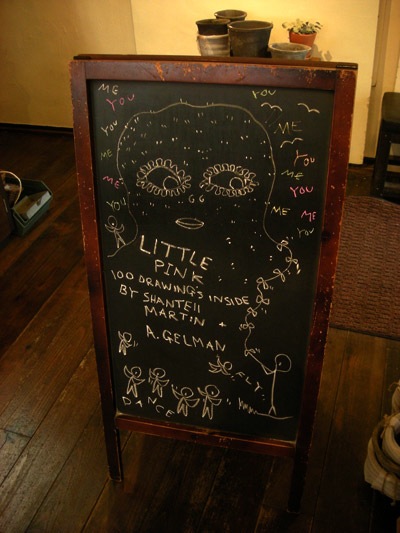 ME
YOU
YOU
ME
ME
YOU
YOU
ME
YOU
ME
YOU
ME
ME
YOU
LITTLE
PINK
100 DRAWING'S INSIDE
BY SHANTEll
MARTIN +
A. GELMAN
FLY
DANCE